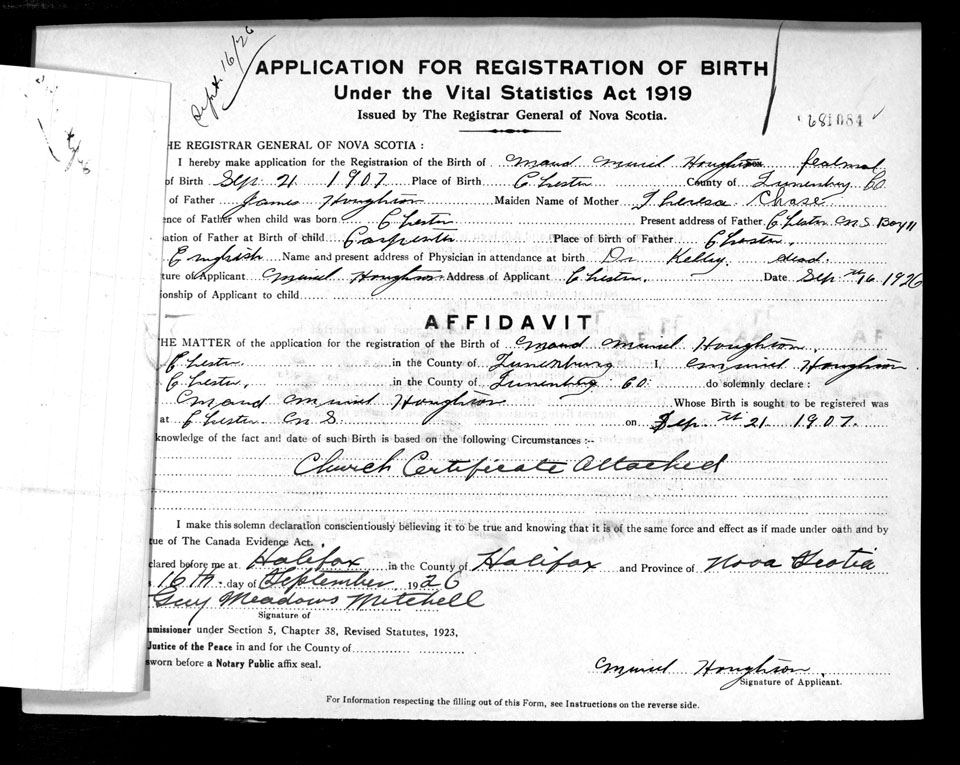 Sept. 16/26
APPLICATION FOR REGISTRATION OF BIRTH
Under the Vital Statistics Act 1919
Issued by The Registrar General of Nova Scotia.
681084
HE REGISTRAR GENERAL OF NOVA SCOTIA :
I hereby make application for the Registration of the Birth of Maud Muriel Houghton
of Birth Sep. 21 1907 Place of Birth Chester County of Lunenburg Co
of Father James Houghton Maiden Name of Mother Theresa Chase
ence of Father when child was born Chester Present address of Father Chester N.S. Box 11
ation of Father at Birth of child Carpenter Place of birth of Father Chester.
English Name and present address of Physician in attendance at birth Dr Kelley dead.
ture of Applicant Muriel Houghton Address of Applicant Chester. Date Sep. th 16 1926
ionship of Applicant to child
AFFIDAVIT
HE MATTER of the application for the registration of the Birth of Maud Muriel Houghton
Chester in the County of Lunenburg I, Muriel Houghton
Chester, in the County of Lunenburg Co. do solemnly declare :
Maud Muriel Houghton Whose Birth is sought to be registered was
at Chester N.S. on Sep. th 21 1907.
knowledge of the fact and date of such Birth is based on the following Circumstances :-
Church Certificate Attached
I make this solemn declaration conscientiously believing it to be true and knowing that it is of the same force and effect as if made under oath and by
ue of The Canada Evidence Act.
lared before me at Halifax in the County of Halifax and Province of Nova Scotia
16th. day of September 1926
Guy Meadows Mitchell
Signature of
mmissioner under Section 5, Chapter 38, Revised Statutes, 1923,
Justice of the Peace in and for the County of
sworn before a Notary Public affix seal.
Muriel Houghton
Signature of Applicant.
For Information respecting the filling out of this Form, see Instructions on the reverse side.